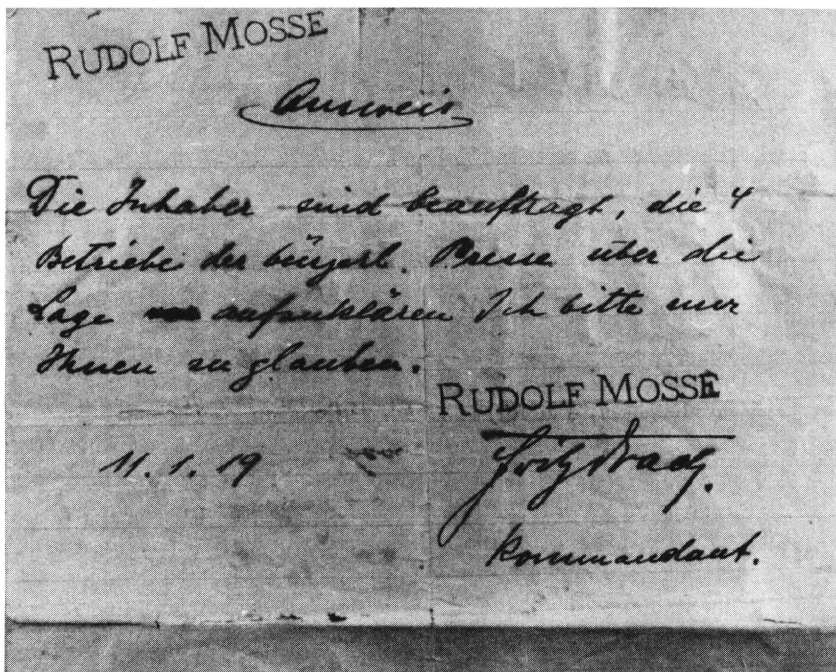 RUDOLF MOSSE
Ausweis
Die Inhaber sind beauftragt, die 4
Betriebe der bürgerl. Presse über die
Lage aufzuklären Ich bitte nur
Ihnen zu glauben.
RUDOLF MOSSE
11. 1. 19
Fritz
Kommandant.